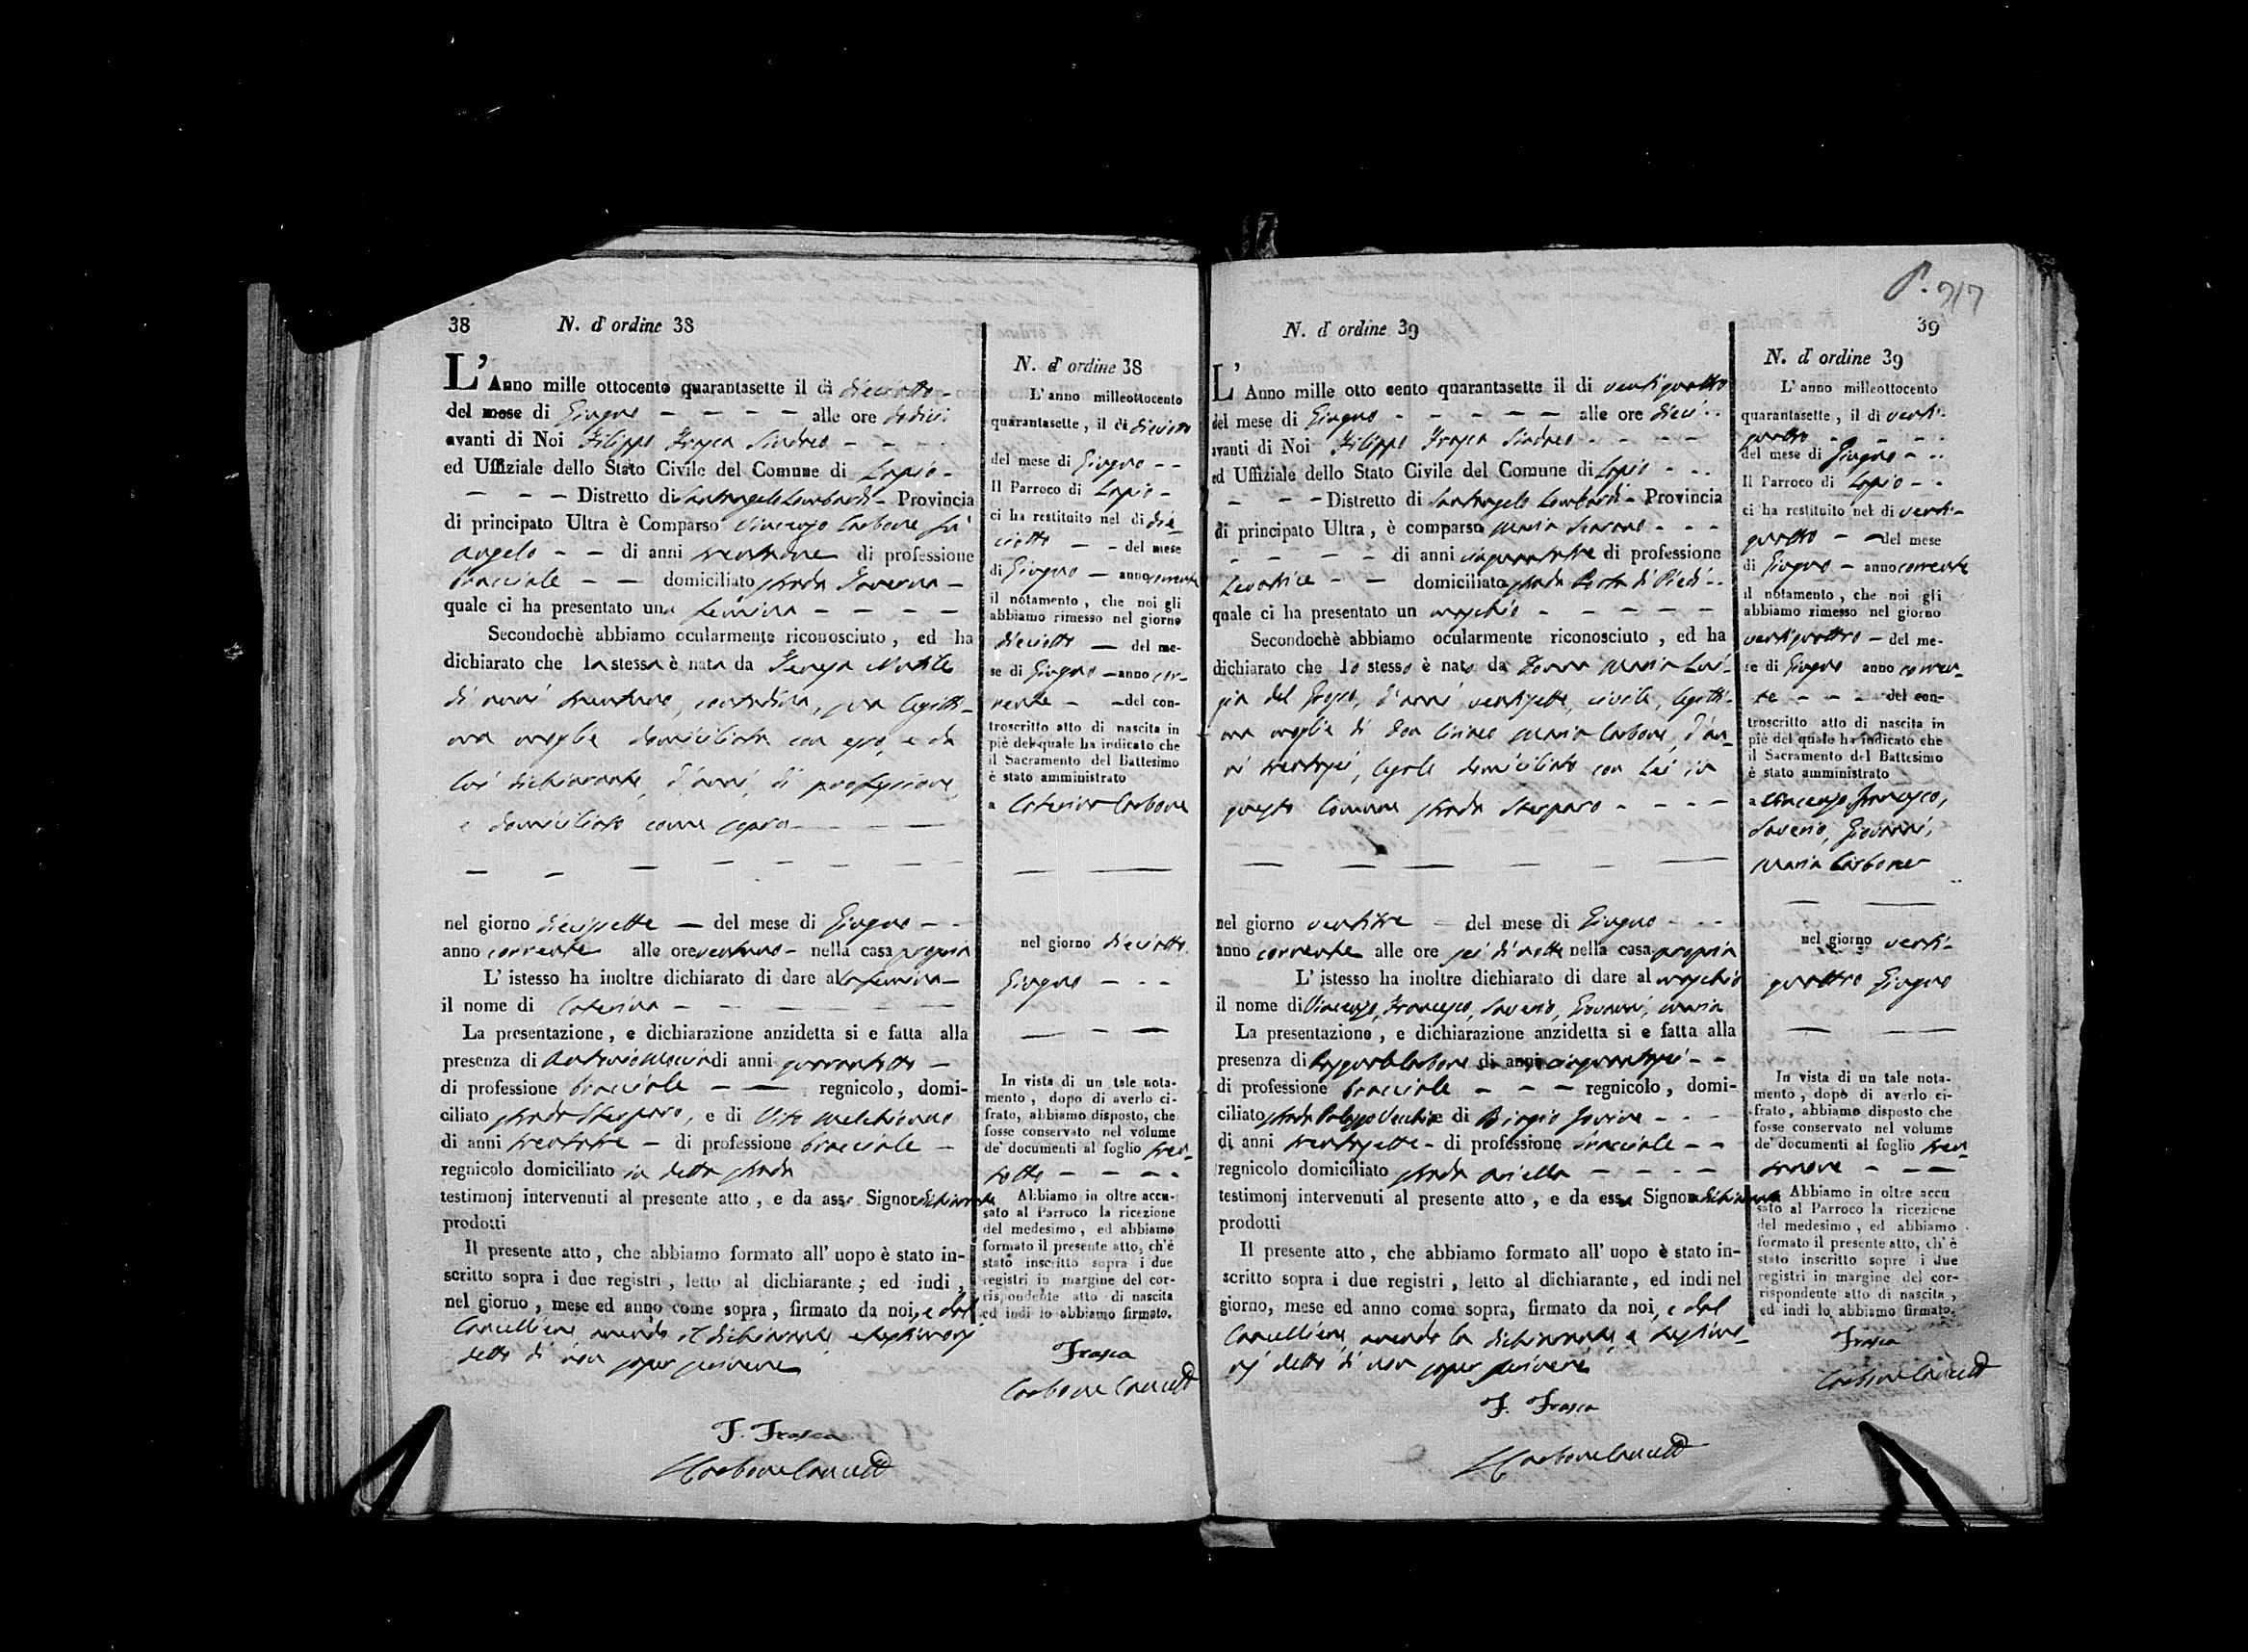 38 N. d' ordine 38
L' Anno mille ottocento quarantasette il di dieciotto -
del mese di Giugno - - - - alle ore dodici
avanti di Noi Filippo Frasca Sindaco - - -
ed Uffiziale dello Stato Civile del Comune di Lapio -
- - - Distretto di Santangelo Lombardi - Provincia
di principato Ultra è Comparso Vincenzo Carbone fu
Angelo - - di anni trentanove di professione
bracciale - - domiciliato strada Taverna -
quale ci ha presentato una femina - - - -
Secondochè abbiamo ocularmente riconosciuto, ed ha
dichiarato che la stessa è nata da Teresa
di anni trentuno, contadina, sua legitti-
ma moglie domiciliata con esso, e da
lui dichiarante, d'anni, di professione,
e domiciliato come sopra - - - -
nel giorno diecissette - del mese di Giugno - -
anno corrente alle ore ventuno - nella casa propria
L' istesso ha inoltre dichiarato di dare alla femina -
il nome di Caterina - - - - -
La presentazione, e dichiarazione anzidetta si e fatta alla
presenza di Antonio di anni quarantotto -
di professione bracciale - - regnicolo, domi-
ciliato strada Sterparo, e di Vito Melchionno
di anni trentatre - di professione bracciale -
regnicolo domiciliato in detta strada
testimonj intervenuti al presente atto, e da esso Signor dichiarante
prodotti
Il presente atto, che abbiamo formato all' uopo è stato in-
scritto sopra i due registri, letto al dichiarante; ed indi,
nel giorno, mese ed anno come sopra, firmato da noi, e dal
Cancelliere, avendo il dichiarante, e testimonj
detto di non saper scrivere
F. Frasca
Carbone Cancell
N. d' ordine 38
L' anno milleottocento
quarantasette, il di dieciotto
del mese di Giugno - -
Il Parroco di Lapio -
ci ha restituito nel di die-
ciotto - - del mese
di Giugno - anno corrente
il notamento, che noi gli
abbiamo rimesso nel giorno
dieciotto - del me-
se di Giugno - anno cor-
rente - - del con-
troscritto atto di nascita in
piè del quale ha indicato che
il Sacramento del Battesimo
è stato amministrato
a Caterina Carbone
nel giorno dieciotto
Giugno - - -
In vista di un tale nota-
mento, dopo di averlo ci-
frato, abbiamo disposto, che
fosse conservato nel volume
de' documenti al foglio tren-
totto - - - -
Abbiamo in oltre accu-
sato al Parroco la ricezione
del medesimo, ed abbiamo
formato il presente atto, ch'è
stato inscritto sopra i due
registri in margine del cor-
rispondente atto di nascita
ed indi lo abbiamo firmato.
Frasca
Carbone Cancell
P. 917
N. d' ordine 39 39
L' Anno mille otto cento quarantasette il di ventiquattro
del mese di Giugno - - - - - alle ore dieci - -
avanti di Noi Filippo Frasca Sindaco - - - -
ed Uffiziale dello Stato Civile del Comune di Lapio - - -
- - - Distretto di Santangelo Lombardi - Provincia
di principato Ultra, è comparsa Maria - - -
- - - - di anni cinquantatre di professione
Levatrice - - domiciliata strada Porta di Piedi - -
quale ci ha presentato un maschio - - - - -
Secondochè abbiamo ocularmente riconosciuto, ed ha
dichiarato che lo stesso è nato da Donna Maria Lui-
gia del Grosso, d'anni ventisette, civile, legitti-
ma moglie di Don Ciriaco Maria Carbone, d'an-
ni trentasei, legale domiciliato con Lui in
questo Comune strada Sterparo - - - -
nel giorno ventitre - del mese di Giugno - - -
anno corrente alle ore sei di notte nella casa propria
L' istesso ha inoltre dichiarato di dare al maschio
il nome di Vincenzo, Francesco, Saverio, Giovanni, Maria
La presentazione, e dichiarazione anzidetta si e fatta alla
presenza di Carbone di anni cinquantasei - -
di professione bracciale - - - regnicolo, domi-
ciliato strada Palazzo Vecchio e di Biagio Iovine - - -
di anni trentasette - di professione bracciale - -
regnicolo domiciliato strada Ariella - - - -
testimonj intervenuti al presente atto, e da essa Signora dichiarante
prodotti
Il presente atto, che abbiamo formato all' uopo è stato in-
scritto sopra i due registri, letto al dichiarante, ed indi nel
giorno, mese ed anno come sopra, firmato da noi, e dal
Cancelliere, avendo la dichiarante, e testimo-
nj detto di non saper scrivere
F. Frasca
Carbone Cancell
N. d' ordine 39
L' anno milleottocento
quarantasette, il di venti-
quattro - - - -
del mese di Giugno - - -
Il Parroco di Lapio - -
ci ha restituito nel di venti-
quattro - - del mese
di Giugno - anno corrente
il notamento, che noi gli
abbiamo rimesso nel giorno
ventiquattro - del me-
se di Giugno anno corren-
te - - - del con-
troscritto atto di nascita in
piè del quale ha indicato che
il Sacramento del Battesimo
è stato amministrato
a Vincenzo, Francesco,
Saverio, Giovanni,
Maria Carbone
nel giorno venti-
quattro Giugno
In vista di un tale nota-
mento, dopo di averlo ci-
frato, abbiamo disposto che
fosse conservato nel volume
de' documenti al foglio tren-
tanove - - -
Abbiamo in oltre accu
sato al Parroco la ricezione
del medesimo, ed abbiamo
formato il presente atto, ch'è
stato inscritto sopre i due
registri in margine del cor-
rispondente atto di nascita,
ed indi lo abbiamo firmato.
Frasca
Carbone Cancell